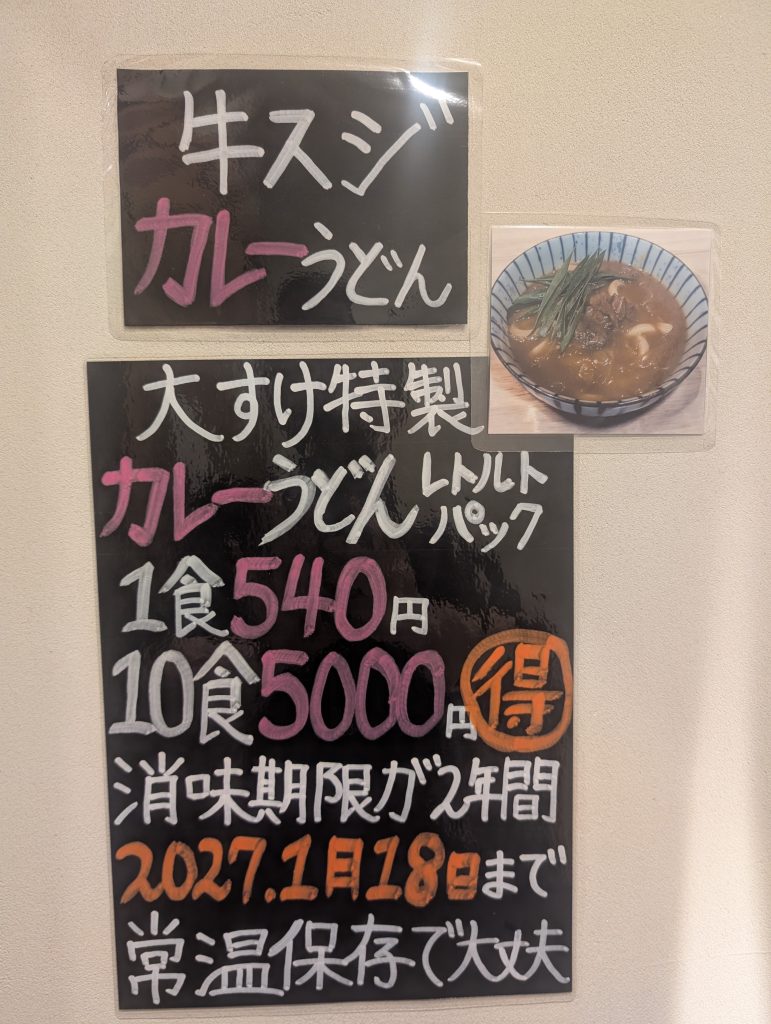 牛スジ
カレーうどん
大すけ特製
カレーうどん レトルトパック
1食540円
10食5000円 得
消味期限が2年間
2027.1月18日まで
常温保存で大丈夫